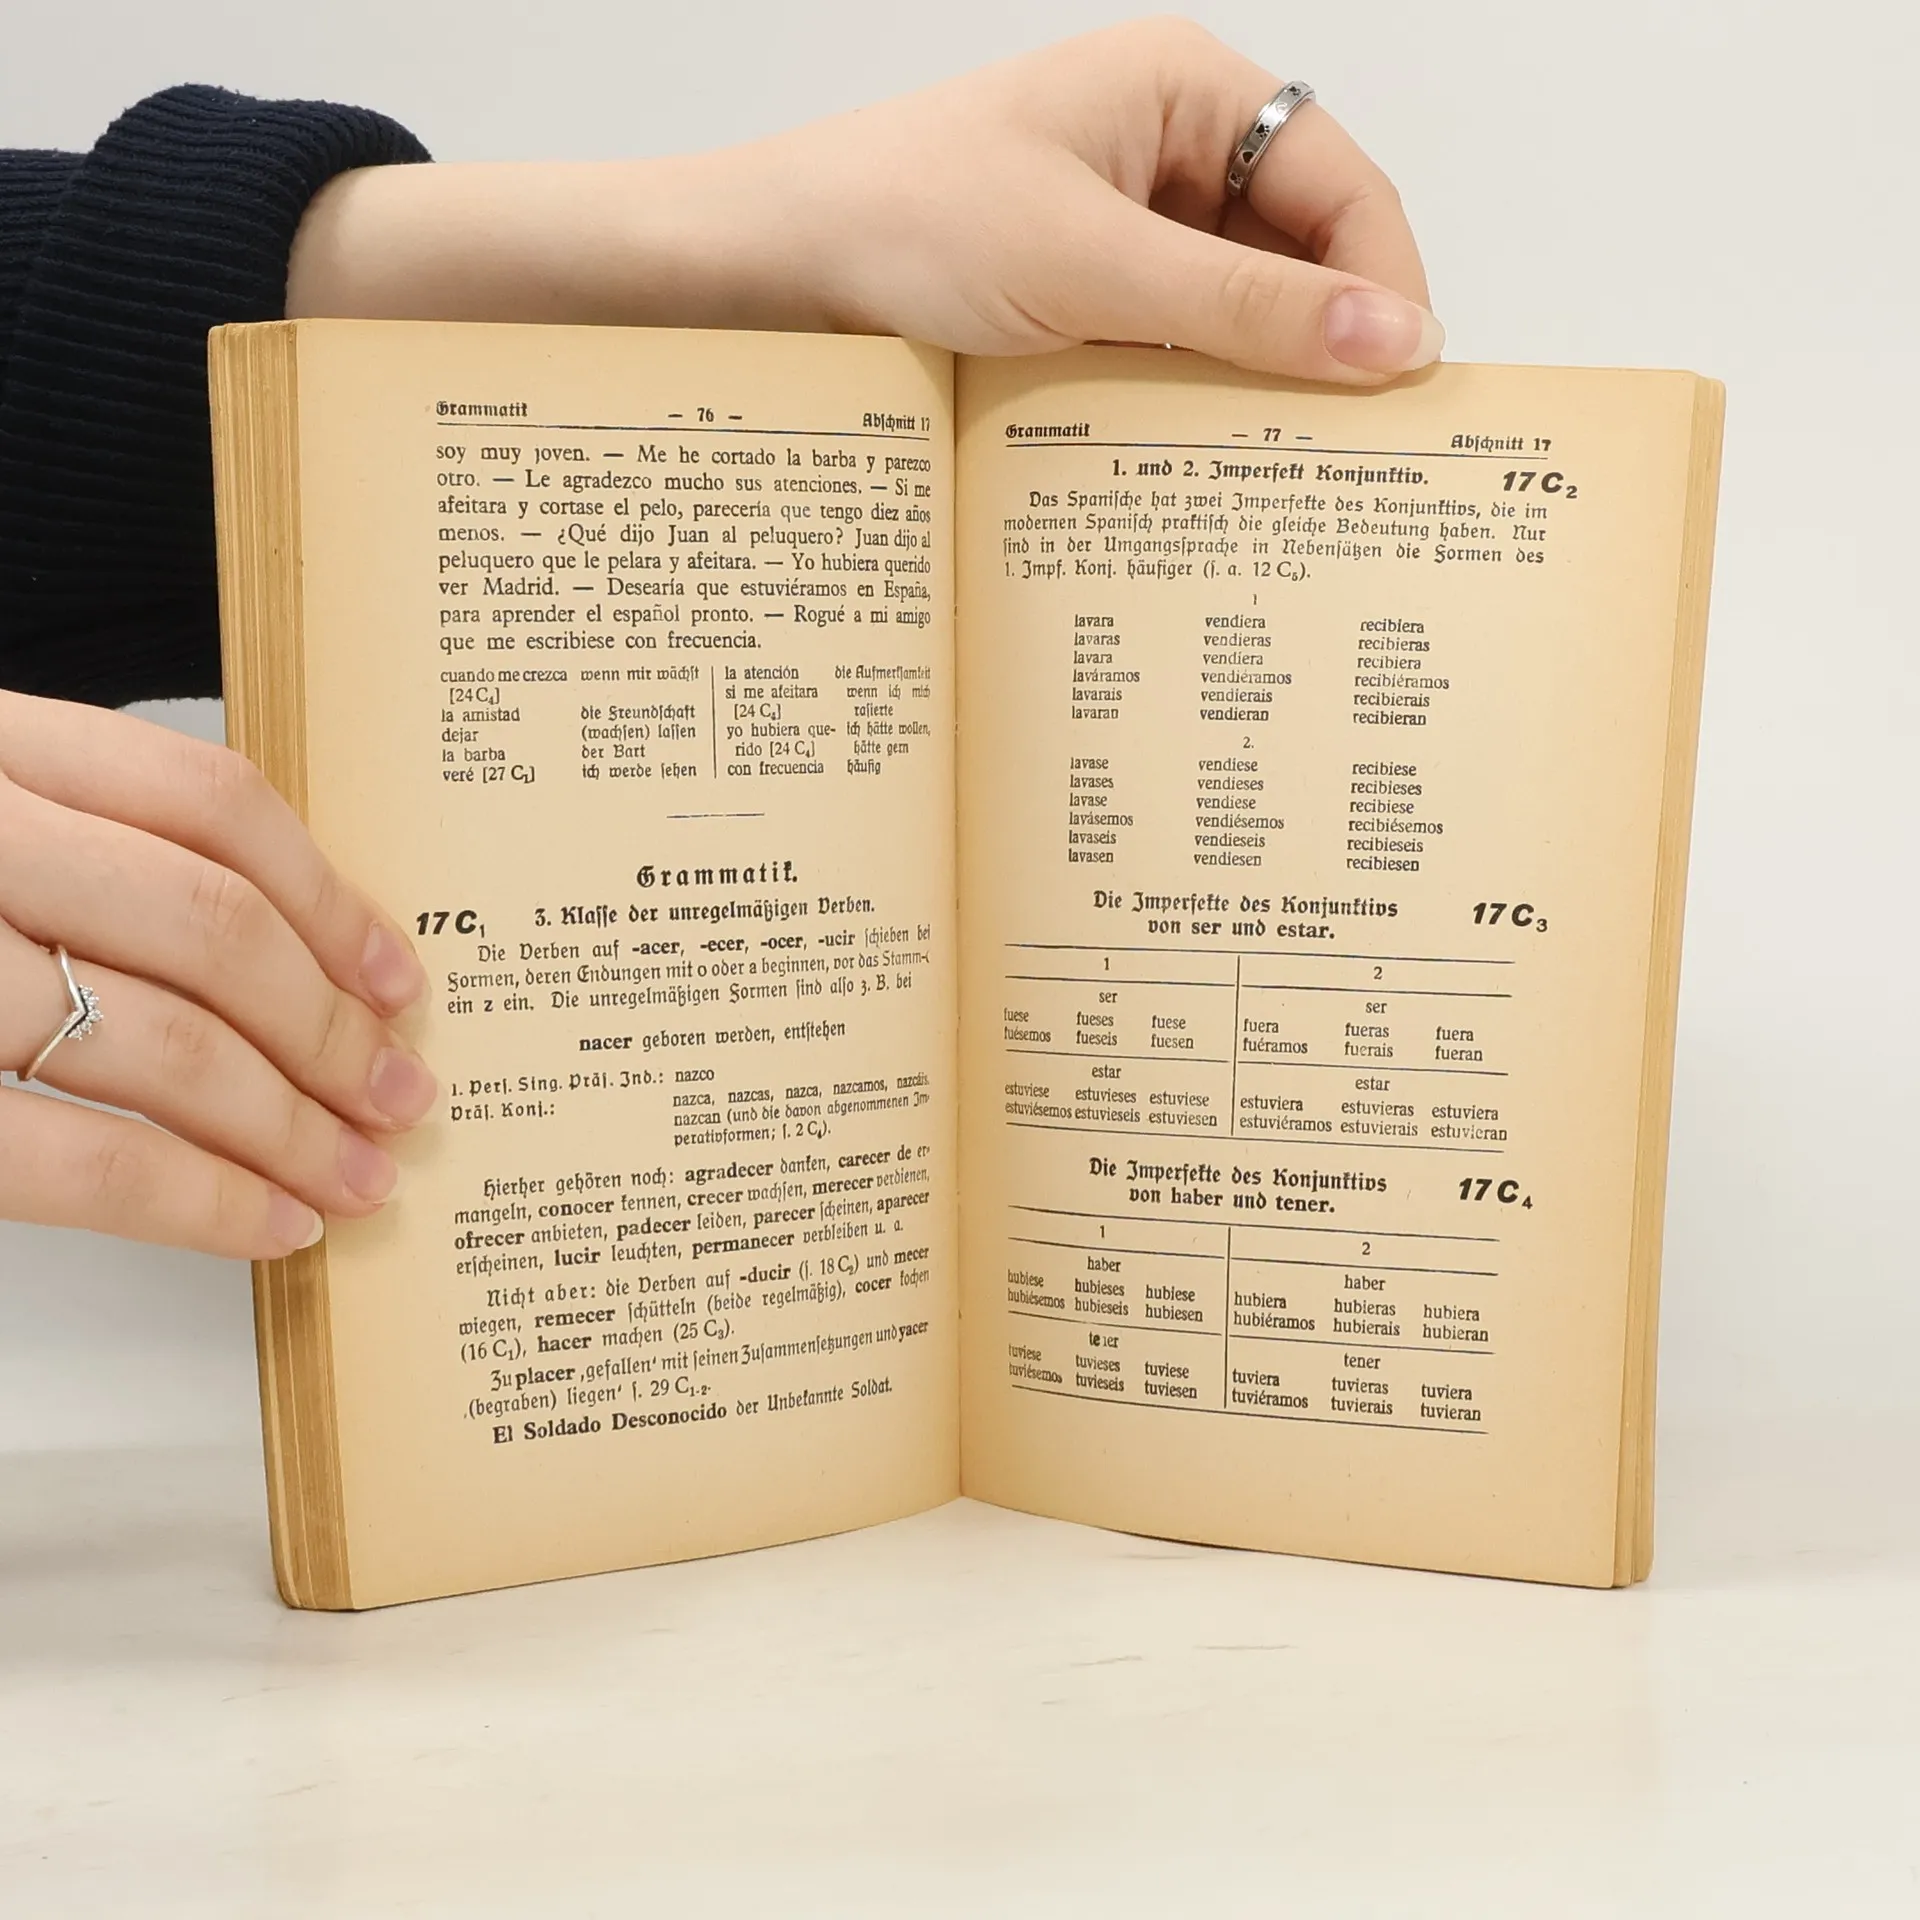 Grammatik — 76 — Abschnitt 17
soy muy joven. — Me he cortado la barba y parezco
otro. — Le agradezco mucho sus atenciones. — Si me
afeitara y cortase el pelo, parecería que tengo diez años
menos. — ¿Qué dijo Juan al peluquero? Juan dijo al
peluquero que le pelara y afeitara. — Yo hubiera querido
ver Madrid. — Desearía que estuviéramos en España,
para aprender el español pronto. — Rogué a mi amigo
que me escribiese con frecuencia.
cuando me crezca wenn mir wächst
[24 C4]
la amistad die Freundschaft
dejar (wachsen) lassen
la barba der Bart
veré [27 C1] ich werde sehen
la atención die Aufmerksamkeit
si me afeitara wenn ich mich
[24 C4] rasierte
yo hubiera que- ich hätte wollen,
rido [24 C4] hätte gern
con frecuencia häufig
Grammatik.
17 C1 3. Klasse der unregelmäßigen Verben.
Die Verben auf -acer, -ecer, -ocer, -ucir schieben bei
Formen, deren Endungen mit o oder a beginnen, vor das Stamm-c
ein z ein. Die unregelmäßigen Formen sind also z. B. bei
nacer geboren werden, entstehen
1. Pers. Sing. Präs. Ind.: nazco
Präs. Konj.: nazca, nazcas, nazca, nazcamos, nazcáis,
nazcan (und die davon abgenommenen Im-
perativformen; s. 2 C4).
Hierher gehören noch: agradecer danken, carecer de er-
mangeln, conocer kennen, crecer wachsen, merecer verdienen,
ofrecer anbieten, padecer leiden, parecer scheinen, aparecer
erscheinen, lucir leuchten, permanecer verbleiben u. a.
Nicht aber: die Verben auf -ducir (s. 18 C2) und mecer
wiegen, remecer schütteln (beide regelmäßig), cocer kochen
(16 C1), hacer machen (25 C3).
Zu placer ‚gefallen‘ mit seinen Zusammensetzungen und yacer
‚(begraben) liegen‘ s. 29 C1-2.
El Soldado Desconocido der Unbekannte Soldat.
Grammatik — 77 — Abschnitt 17
1. und 2. Imperfekt Konjunktiv. 17 C2
Das Spanische hat zwei Imperfekte des Konjunktivs, die im
modernen Spanisch praktisch die gleiche Bedeutung haben. Nur
sind in der Umgangssprache in Nebensätzen die Formen des
1. Impf. Konj. häufiger (s. a. 12 C5).
1
lavara vendiera recibiera
lavaras vendieras recibieras
lavara vendiera recibiera
laváramos vendiéramos recibiéramos
lavarais vendierais recibierais
lavaran vendieran recibieran
2.
lavase vendiese recibiese
lavases vendieses recibieses
lavase vendiese recibiese
lavásemos vendiésemos recibiésemos
lavaseis vendieseis recibieseis
lavasen vendiesen recibiesen
Die Imperfekte des Konjunktivs 17 C3
von ser und estar.
1 2
ser ser
fuese fueses fuese fuera fueras fuera
fuésemos fueseis fuesen fuéramos fuerais fueran
estar estar
estuviese estuvieses estuviese estuviera estuvieras estuviera
estuviésemos estuvieseis estuviesen estuviéramos estuvierais estuvieran
Die Imperfekte des Konjunktivs 17 C4
von haber und tener.
1 2
haber haber
hubiese hubieses hubiese hubiera hubieras hubiera
hubiésemos hubieseis hubiesen hubiéramos hubierais hubieran
tener tener
tuviese tuvieses tuviese tuviera tuvieras tuviera
tuviésemos tuvieseis tuviesen tuviéramos tuvierais tuvieran